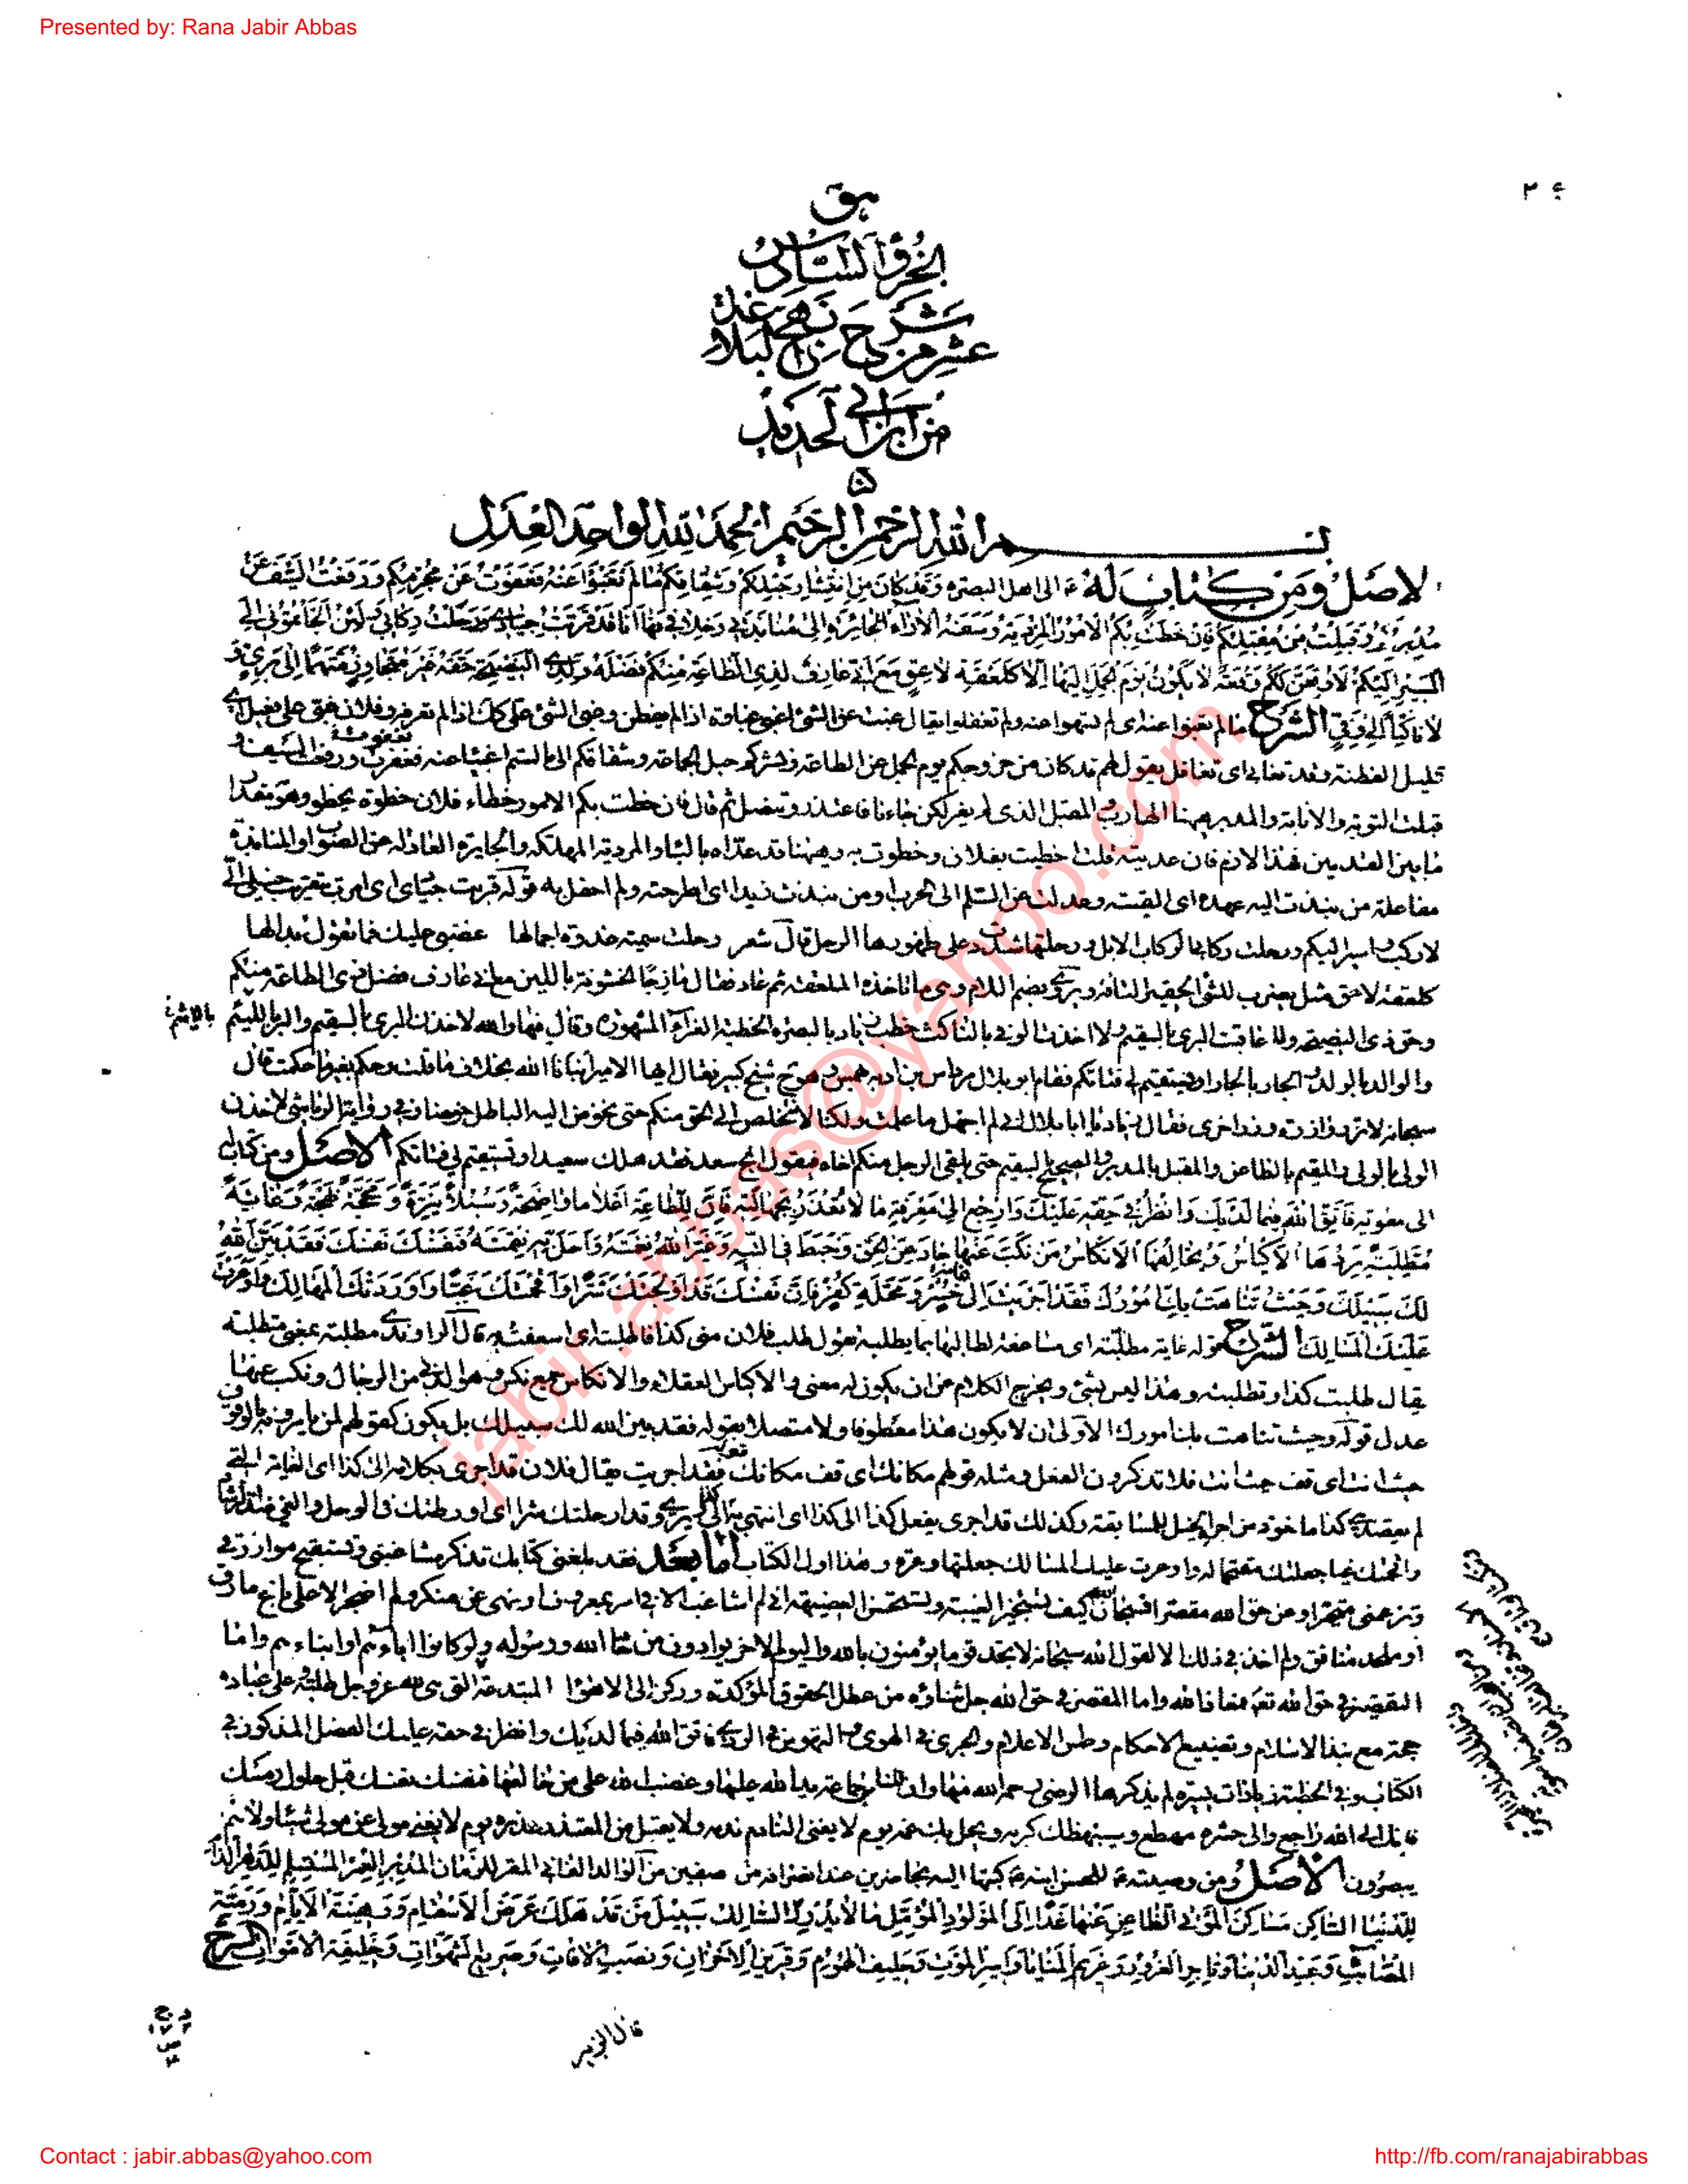 Presented by: Rana Jabir Abbas
هو
الجزؤ السادس
عشر من شرح نهج البلاغة
من ابن ابى الحديد
بسم الله الرحمن الرحيم الحمد لله الواحد العدل
الاصل ومن كتاب له ع الى اهل البصره وقد كان من انتشار حبلكم وشقاقكم ما لم تغبوا عنه فعفوت عن مجرمكم ورفعت السيف عن
مدبركم وقبلت من مقبلكم فان خطت بكم الامور المردية وسفه الاراء الجائرة الى منابذتى وخلافى فها انا قد قربت جيادى ورحلت ركابى ولئن الجأتمونى الى
المسير اليكم لاوقعن بكم وقعة لا يكون يوم الجمل اليها الا كلعقة لاعق مع انى عارف لذى الطاعة منكم فضله ولذى النصيحة حقه غير متجاوز متهما الى برى و
لا ناكثا الى وفى الشرح ما لم تغبوا عنه اى لم تسهوا عنه ولم تغفلوا يقال غبيت عن الشئ اغبى غباوة اذا لم يفطن وغبى الشئ على كذلك اذا لم تعرفه وفلان غبى على فعيل اى
قليل الفطنة وقد تغابى اى تغافل يقول لهم قد كان من خروجكم يوم الجمل عن الطاعة ونشركم حبل الجماعة وشقاقكم الى ما لستم اغبياء عنه فغفرت ورفعت السيف و
قبلت التوبة والانابة والمدبر ههنا الهارب والمقبل الذى لم يفر لكن جاءنا فاعتذر وتنصل ثم قال فان خطت بكم الامور خطاء فلان خطوة يخطو وهو مقدار
ما بين القدمين فهذا لازم فان عديته قلت اخطيت بفلان وخطوت به وههنا قد عداه بالباء والمردية المهلكة والجايرة العادلة عن الصواب والمنابذة
مفاعلة من نبذت اليه عهده اى القيته وعدلت عن السلم الى الحرب او من نبذت زيدا اى اطرحته ولم احفل به قوله قربت جيادى اى امرت بتقريب خيلى الى
لاركب واسير اليكم ورحلت ركابى الركاب الابل ورحلتها شددت على ظهورها الرحل قال شعر رحلت سمية غدوة اجمالها غضبى عليك فما تقول بدا لها
كلعقة لاعق مثل يضرب للشئ الحقير التافه ويروى بضم اللام وهى ما تاخذه الملعقة ثم عاد فقال مازجا الخشونة باللين مع انى عارف فضل ذى الطاعة منكم
وحق ذى النصيحة ولو عاقبت البرى بالسقيم ولا اخذت الوفى بالناكث خطب زياد بالبصره الخطبة الغراء المشهورة وقال فيها والله لاخذن البرى بالسقيم والبر باللئيم
والوالد بالولد والجار بالجار او تستقيم لى قناتكم فقام ابو بلال مرداس بن اديه يهمس وهو شيخ كبير فقال ايها الامير انبانا الله بخلاف ما قلت وحكم بغير ما حكمت قال
سبحانه لا تزر وازرة وزر اخرى فقال زياد يا ابا بلال انى لم اجهل ما علمت ولكنا لا نخلص الى الحق منكم حتى نخوض اليه الباطل خوضا وفى رواية الرياشى لاخذن
الولى بالولى والمقيم بالظاعن والمقبل بالمدبر والصحيح بالسقيم حتى يلقى الرجل منكم اخاه فيقول انج سعد فقد هلك سعيد او تستقيم لى قناتكم الاصل ومن كتاب له
الى معوية فاتق الله فيما لديك وانظر فى حقه عليك وارجع الى معرفة ما لا تعذر بجهالته فان للطاعة اعلاما واضحة وسبلا نيرة ومحجة نهجة وغاية
مطلبة يردها الاكياس ويخالفها الانكاس من نكب عنها جار عن الحق وخبط فى التيه وغير الله نعمته واحل به نقمته فنفسك نفسك فقد بين الله
لك سبيلك وحيث تناهت بك امورك فقد اجريت الى غاية خسر ومحلة كفر فان نفسك قد اولجتك شرا واقحمتك غيا واوردتك المهالك واوعرت
عليك المسالك الشرح قوله غاية مطلبة اى مساعفة لطالبها بما يطلبه تقول طلب فلان منى كذا فاطلبته اى اسعفته به قال الراوندى مطلبة بمعنى متطلبة
يقال طلبت كذا وتطلبته وهذا ليس بشئ ويخرج الكلام عن ان يكون له معنى والاكياس العقلاء والانكاس جمع نكس وهو الدنى من الرجال ونكب عنها
عدل قوله وحيث تناهت بك امورك الاولى ان لا يكون هذا معطوفا ولا متصلا بقوله فقد بين الله لك سبيلك بل يكون كقولهم لمن يامرونه بالوقوف
حيث انت اى قف حيث انت فلا تذكرون الفعل ومثله قولهم مكانك اى قف مكانك قوله فقد اجريت يقال فلان قد اجرى بكلامه الى كذا اى الغاية التى
لم يقصدها كذا ماخوذ من اجراء الخيل للمسابقة وكذلك قد اجرى بفعله كذا الى كذا اى انتهى به الى كذا ويروى قد اوحلتك شرا اى اورطتك فى الوحل والغى ضد الرشاد
واقحمتك غيا جعلتك مقتحما له واوعرت عليك المسالك جعلتها وعرة وهذا اول الكتاب اما بعد فقد بلغنى كتابك تذكر مشاغبتى وتستقبح موازرتى
وتزعمنى متجبرا وعن حق الله مقصرا فسبحان الله كيف تستجيز الغيبة وتستحسن العضيهة انى لم اشاغب الا فى امر بمعروف او نهى عن منكر ولم اضجر الا على باغ مارق
او ملحد منافق ولم اخذ فى ذلك الا لقول الله سبحانه لا تجد قوما يؤمنون بالله واليوم الاخر يوادون من حاد الله ورسوله ولو كانوا اباءهم او ابناءهم واما
التقصير فى حق الله تعالى فمعاذ الله واما المقصر فى حق الله جل ثناؤه من عطل الحقوق المؤكدة وركن الى الاهواء المبتدعة
حجة مع نبذ الاسلام وتضييع الاحكام وطمس الاعلام والجرى فى الهوى والتهوس فى الردى فاتق الله فيما لديك وانظر فى حقه عليك الفصل المذكور فى
الكتاب وفى الخطبة زيادات يسيرة لم يذكرها الرضى رحمه الله منها وان للناس جماعة يد الله عليها وغضب الله على من خالفها فنفسك نفسك قبل حلول رمسك
فانك الى الله راجع والى حشره مهطع وسيبهظك كربه ويحل بك غمه يوم لا يغنى النادم ندمه ولا يقبل من المعتذر عذره يوم لا يغنى مولى عن مولى شيئا ولا هم
ينصرون الاصل ومن وصيته ع للحسن ابنه ع كتبها اليه بحاضرين عند انصرافه من صفين من الوالد الفان المقر للزمان المدبر العمر المستسلم للدهر الذام
للدنيا الساكن مساكن الموتى الظاعن عنها غدا الى المولود المؤمل ما لا يدرك السالك سبيل من قد هلك غرض الاسقام ورهينة الايام ورمية
المصائب وعبد الدنيا وتاجر الغرور وغريم المنايا واسير الموت وحليف الهموم وقرين الاحزان ونصب الافات وصريع الشهوات وخليفة الاموات الشرح
قال الزبير
jabir.abbas@yahoo.com
Contact : jabir.abbas@yahoo.com
http://fb.com/ranajabirabbas